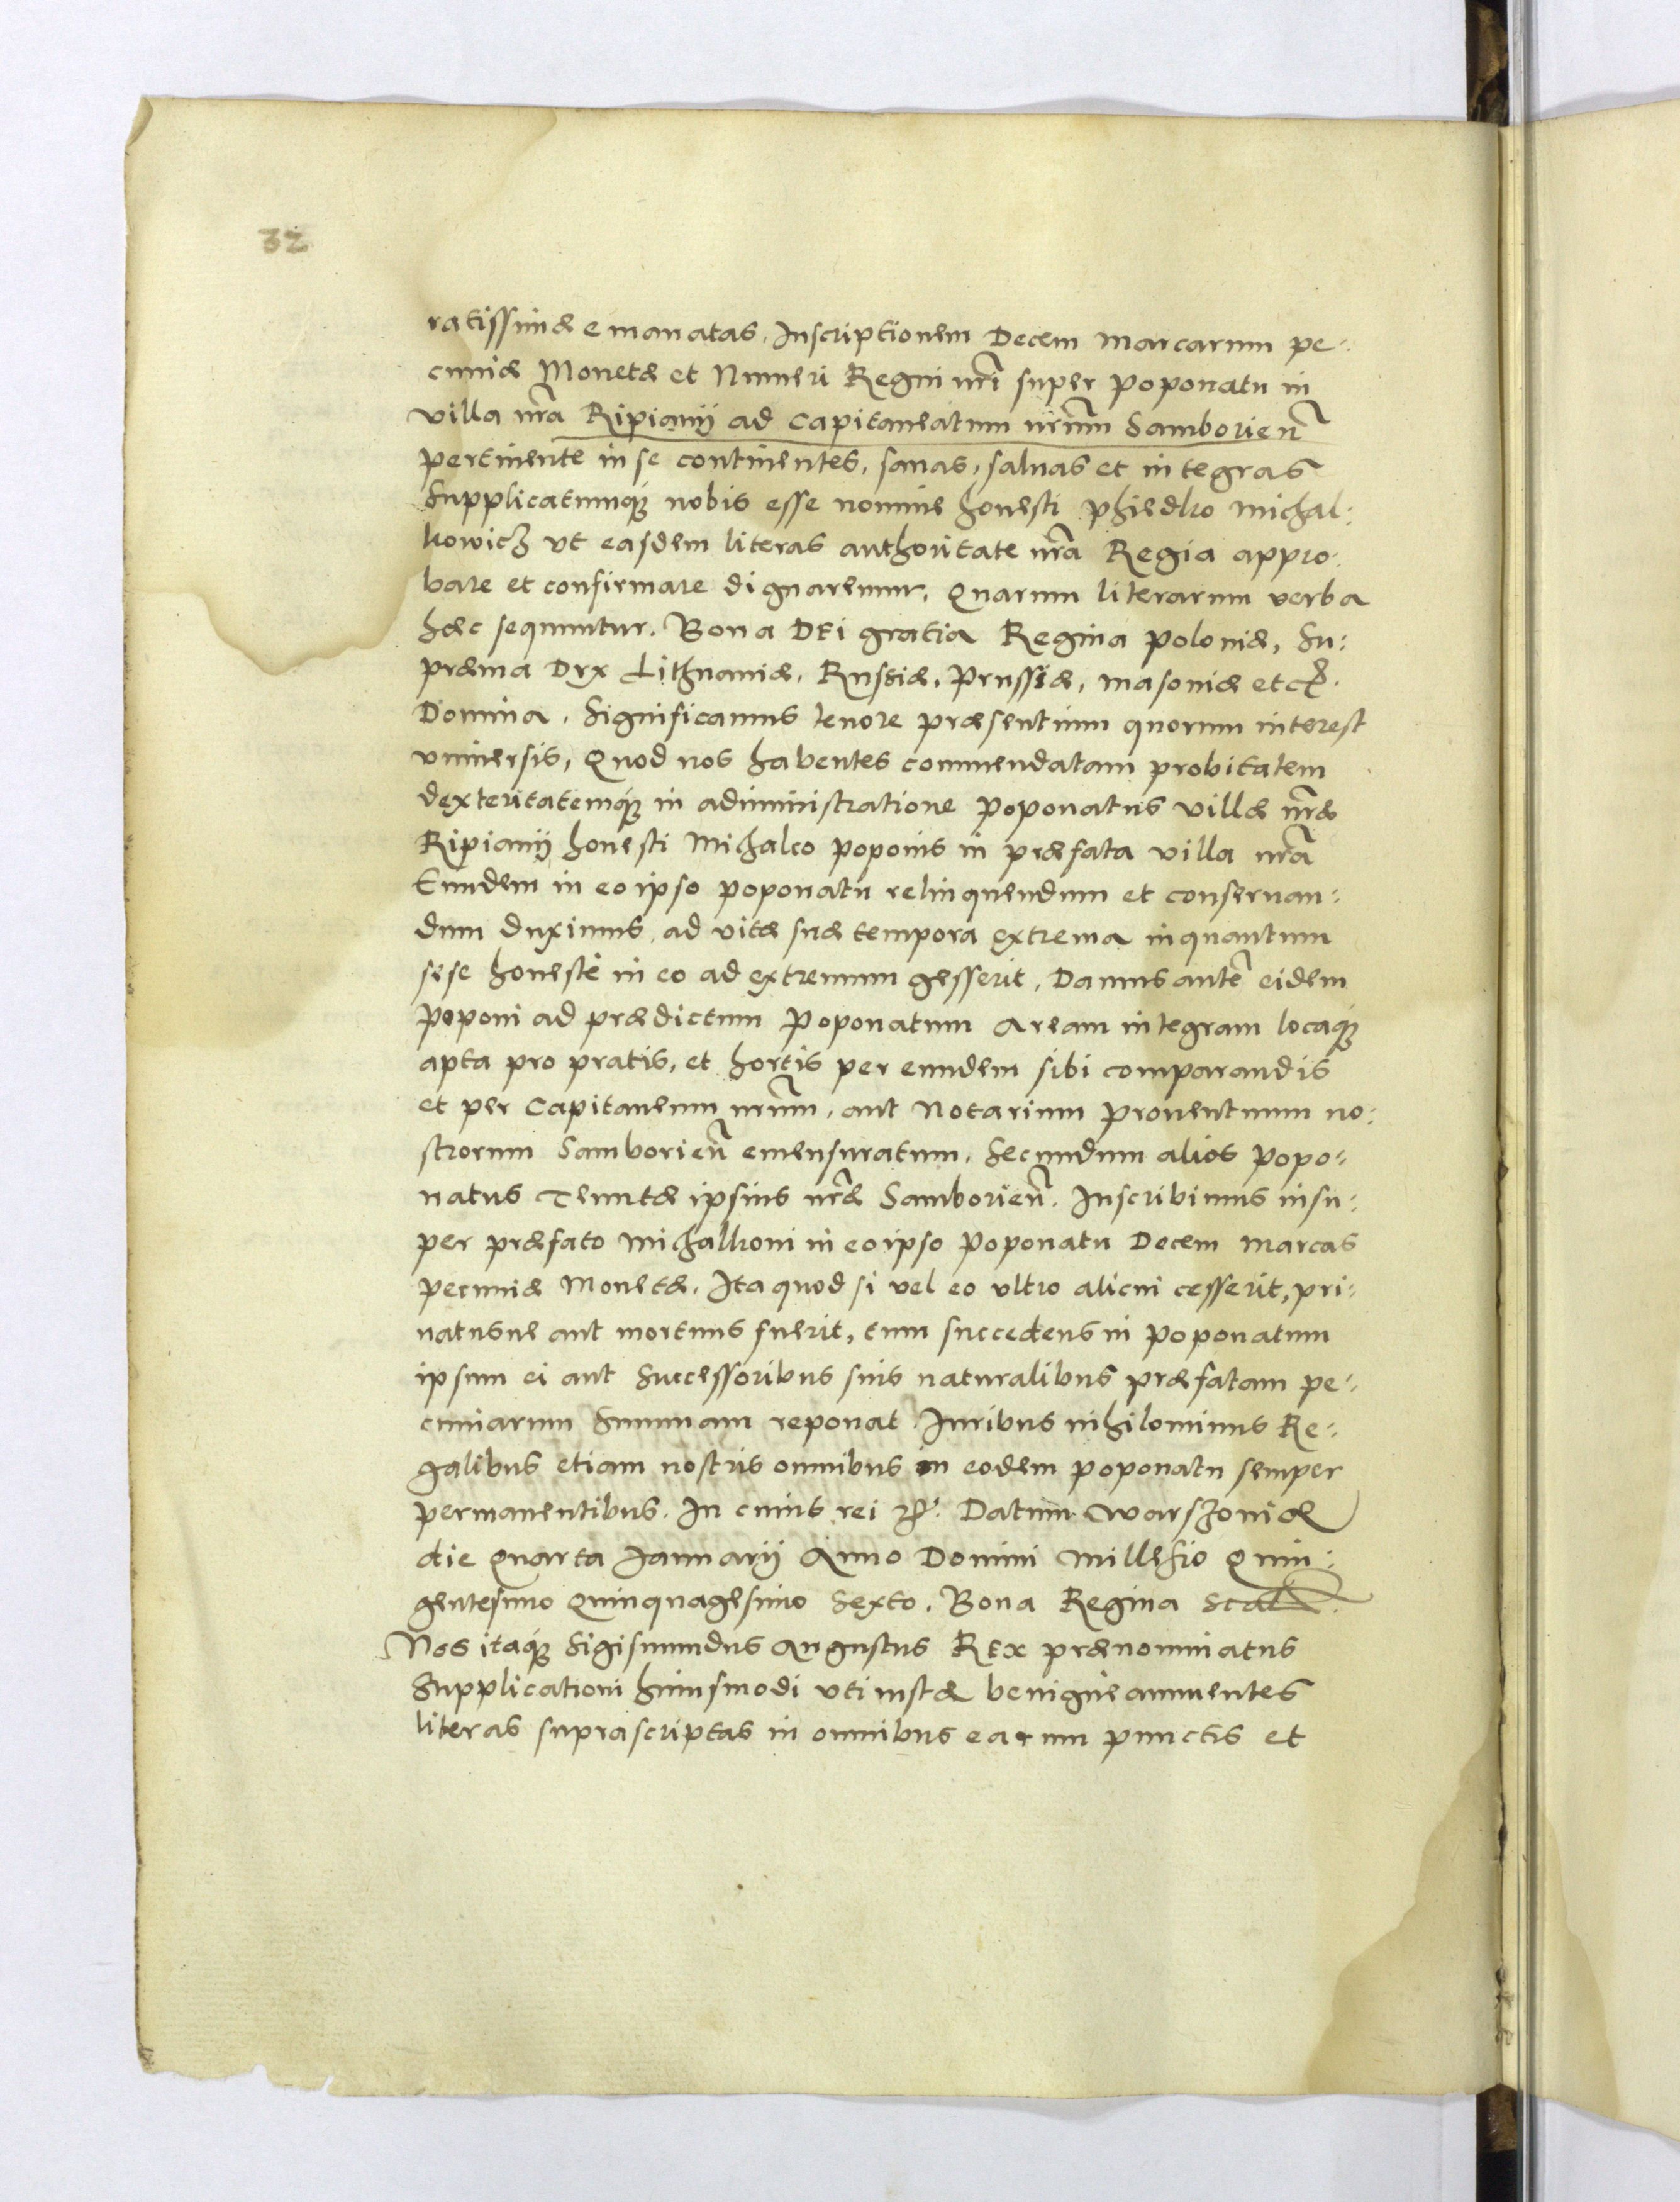 32
ratissimæ emanatas, Inscriptionem Decem marcarum pe:
cuniæ Monetæ et Numeri Regni nr̃i super poponatu in
villa nr̃a Ripianÿ ad capitaneatum nr̃um Samborien̄
pertinente in se continentes, sanas, saluas et integras
Supplicatumq; nobis esse nomine honesti phiedko michal:
kowicz vt easdem literas authoritate nr̃a Regia appro:
bare et confirmare dignaremur. Quarum literarum verba
hæc sequuntur. Bona DEi gratia Regina poloniæ, Su:
præma Dux Lithuaniæ, Russiæ, Prussiæ, masoniæ etc̃.
Domina. Significamus tenore præsentium quorum interest
vniuersis, Quod nos habentes commendatam probitatem
dexteritatemq; in administratione poponatus villæ nr̃æ
Ripianÿ honesti Michalco poponis in præfata villa nr̃a
Eundem in eo ipso poponatu relinquendum et conseruan:
dum duximus, ad vitæ suæ tempora extrema inquantum
sese honestè in eo ad extremum gesserit, Damus autẽ eidem
poponi ad prædictum poponatum Aream integram locaq;
apta pro pratis, et hortis per eundem sibi comparandis
et per Capitaneum nr̃um, aut Notarium prouentuum no:
strorum Samborien̄ emensuratum, Secundum alios popo:
natus Tenutæ ipsius nr̃æ Samborien̄. Inscribimus insu:
per præfato michalkoni in eo ipso poponatu Decem marcas
pecuniæ Monetæ. Ita quod si vel eo vltro alicui cesserit, pri:
uatusue aut mortuus fuerit, tum succedens in poponatum
ipsum ei aut Successoribus suis naturalibus præfatam pe:
cuniarum Summam reponat. Iuribus nihilominus Re:
galibus etiam nostris omnibus in eodem poponatu semper
permanentibus. In cuius rei etc. Datum Warszouiæ
die Quarta Ianuarij Anno Domini Millesĩo Quin:
gentesimo Quinquagesimo Sexto. Bona Regina sctᵃ.
Nos itaq; Sigismundus Augustus REx prænominatus
Supplicationi huiusmodi vti iustæ benigne annuentes
literas suprascriptas in omnibus earum punctis et